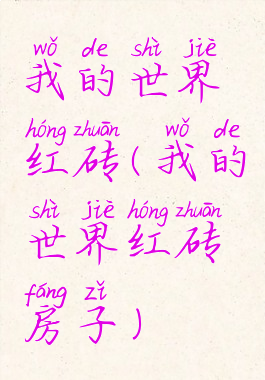 wǒ de shì jiè
我的世界
hóng zhuān wǒ de
红砖(我的
shì jiè hóng zhuān
世界红砖
fáng zǐ
房子)